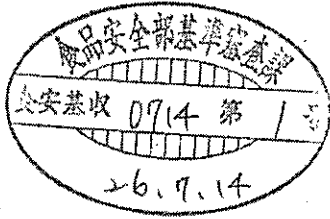 食品安全部基準審査課
食安基収 0714 第 1 号
26.7.14